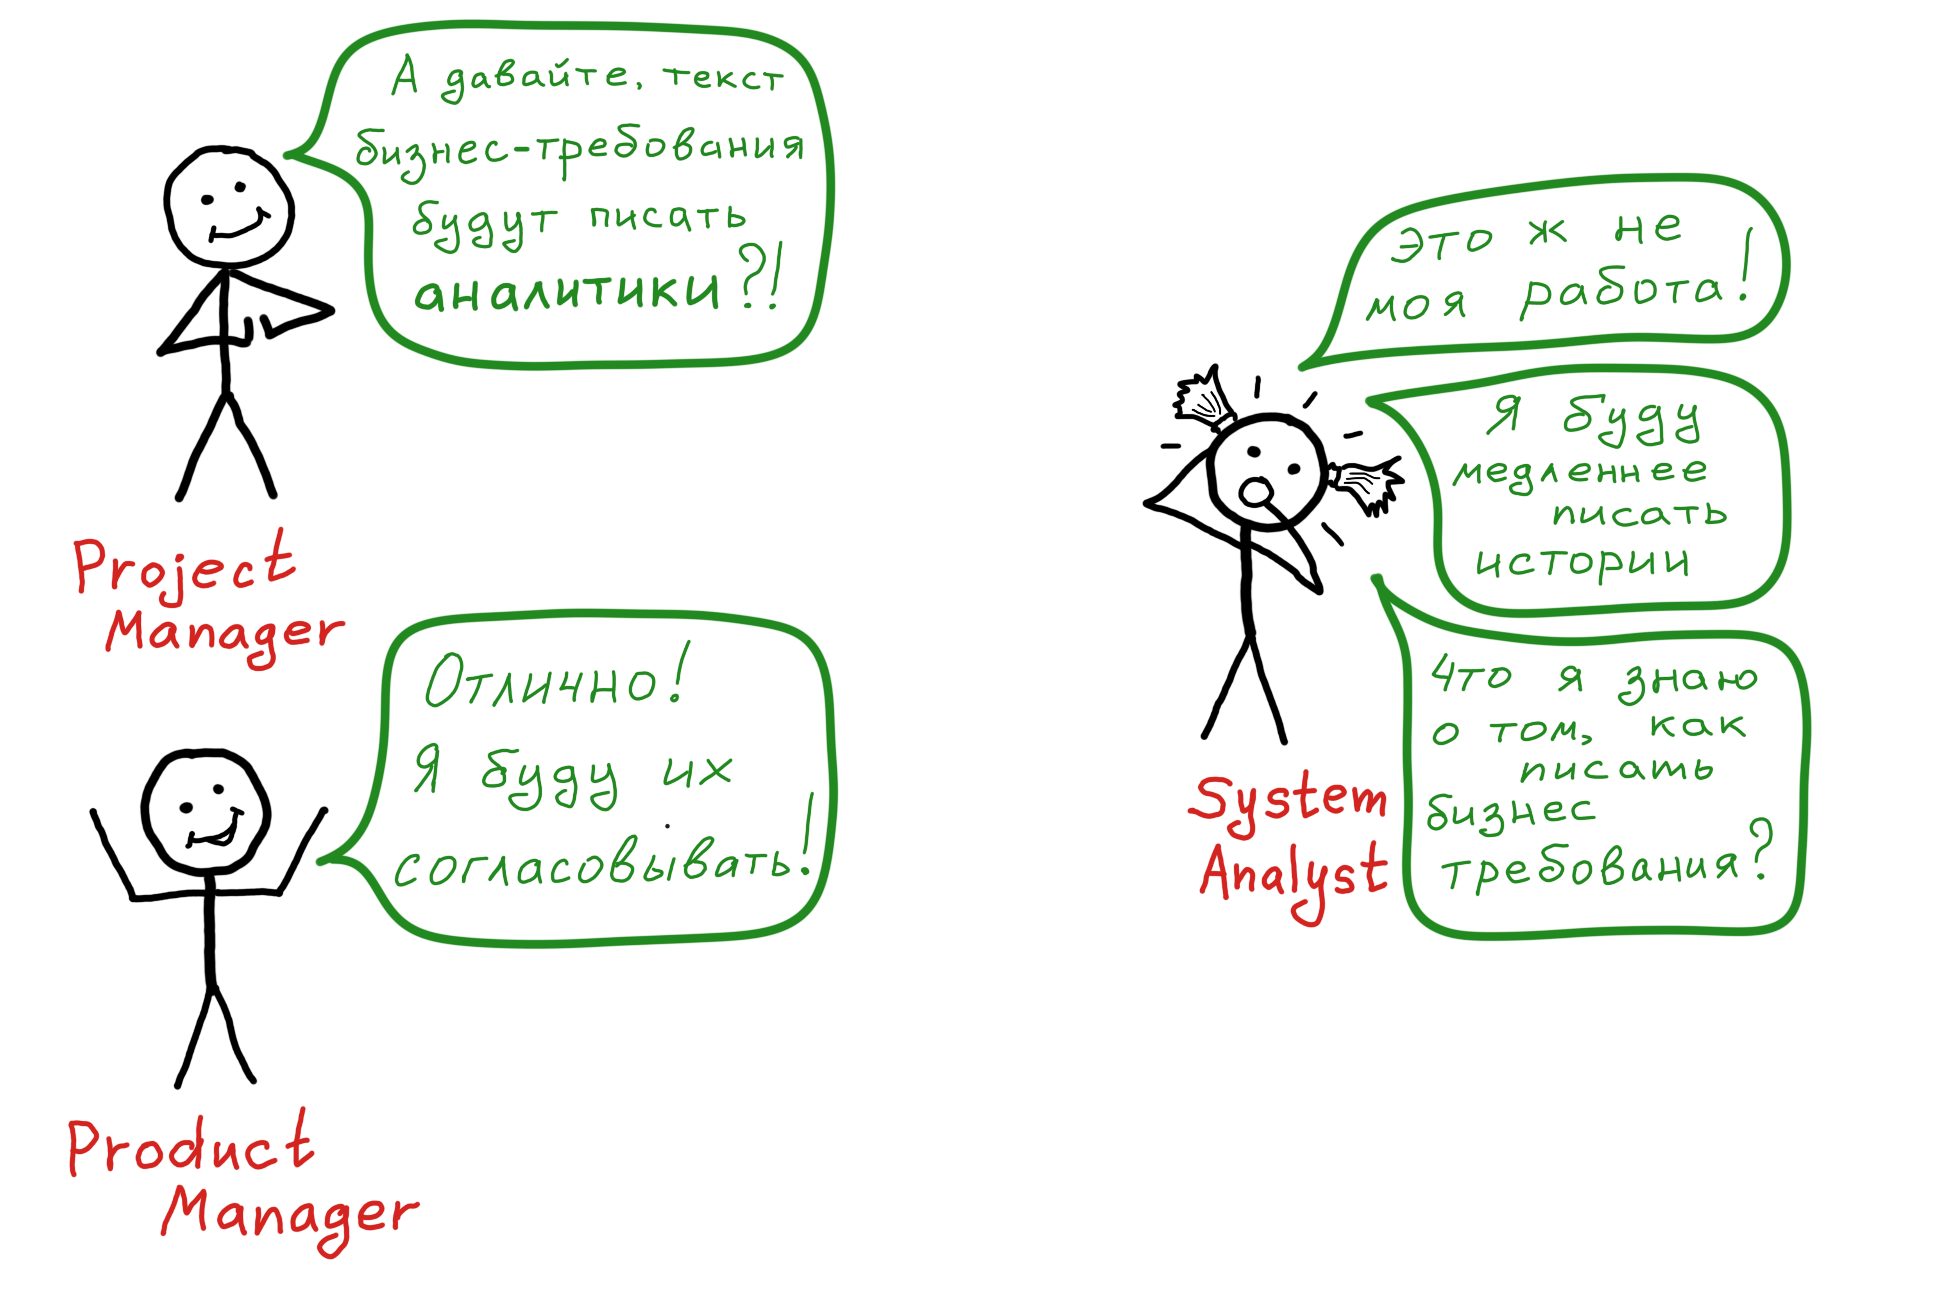 А давайте, текст
бизнес-требования
будут писать
аналитики?!
Project
Manager
Отлично!
Я буду их
согласовывать!
Product
Manager
Это ж не
моя работа!
Я буду
медленнее
писать
истории
Что я знаю
о том, как
писать
бизнес
требования?
System
Analyst